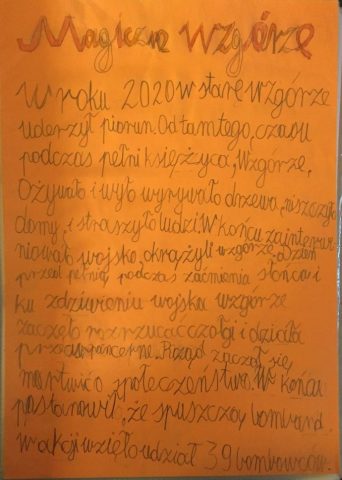 Magiczne wzgórze
W roku 2020 w stare wzgórze
uderzył piorun. Od tamtego, czasu
podczas pełni księżyca, Wzgórze,
Ożywało i wyło wyrywało drzewa, niszczyło
domy, i straszyło ludzi. W końcu zainterwe
niowało wojsko, okrążyli wzgórze, a dzień
przed pełnią, podczas zaćmienia słońca i
ku zdziwieniu wojska wzgórze
zaczęło rozrzucać czołgi i działa
przeciwpancerne. Rząd zaczął się
martwić o społeczeństwo. W końcu
postanowił, że spuszczą bombard.
w akcji wzięło udział 39 bombowców.